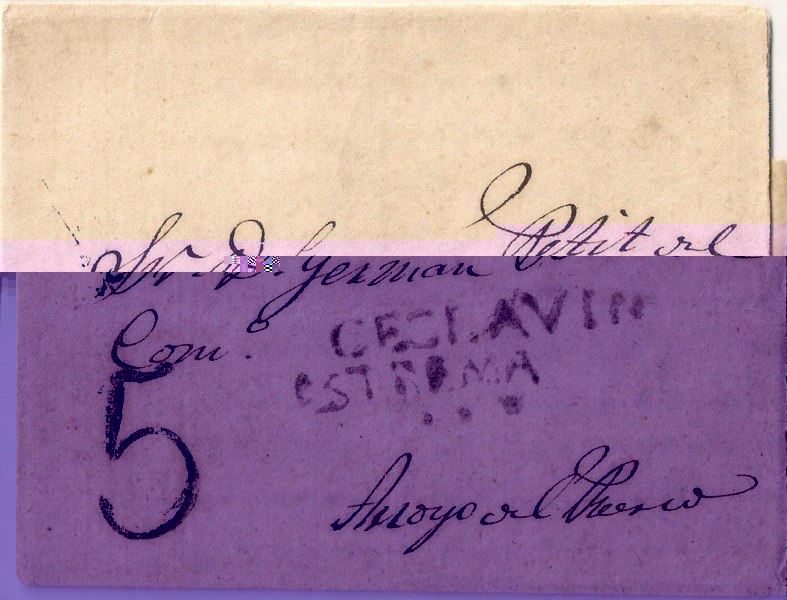 Sr. D. German Petit del
Com.o
CEZLAVIN
ESTREMA
5
Arroyo del Puerco